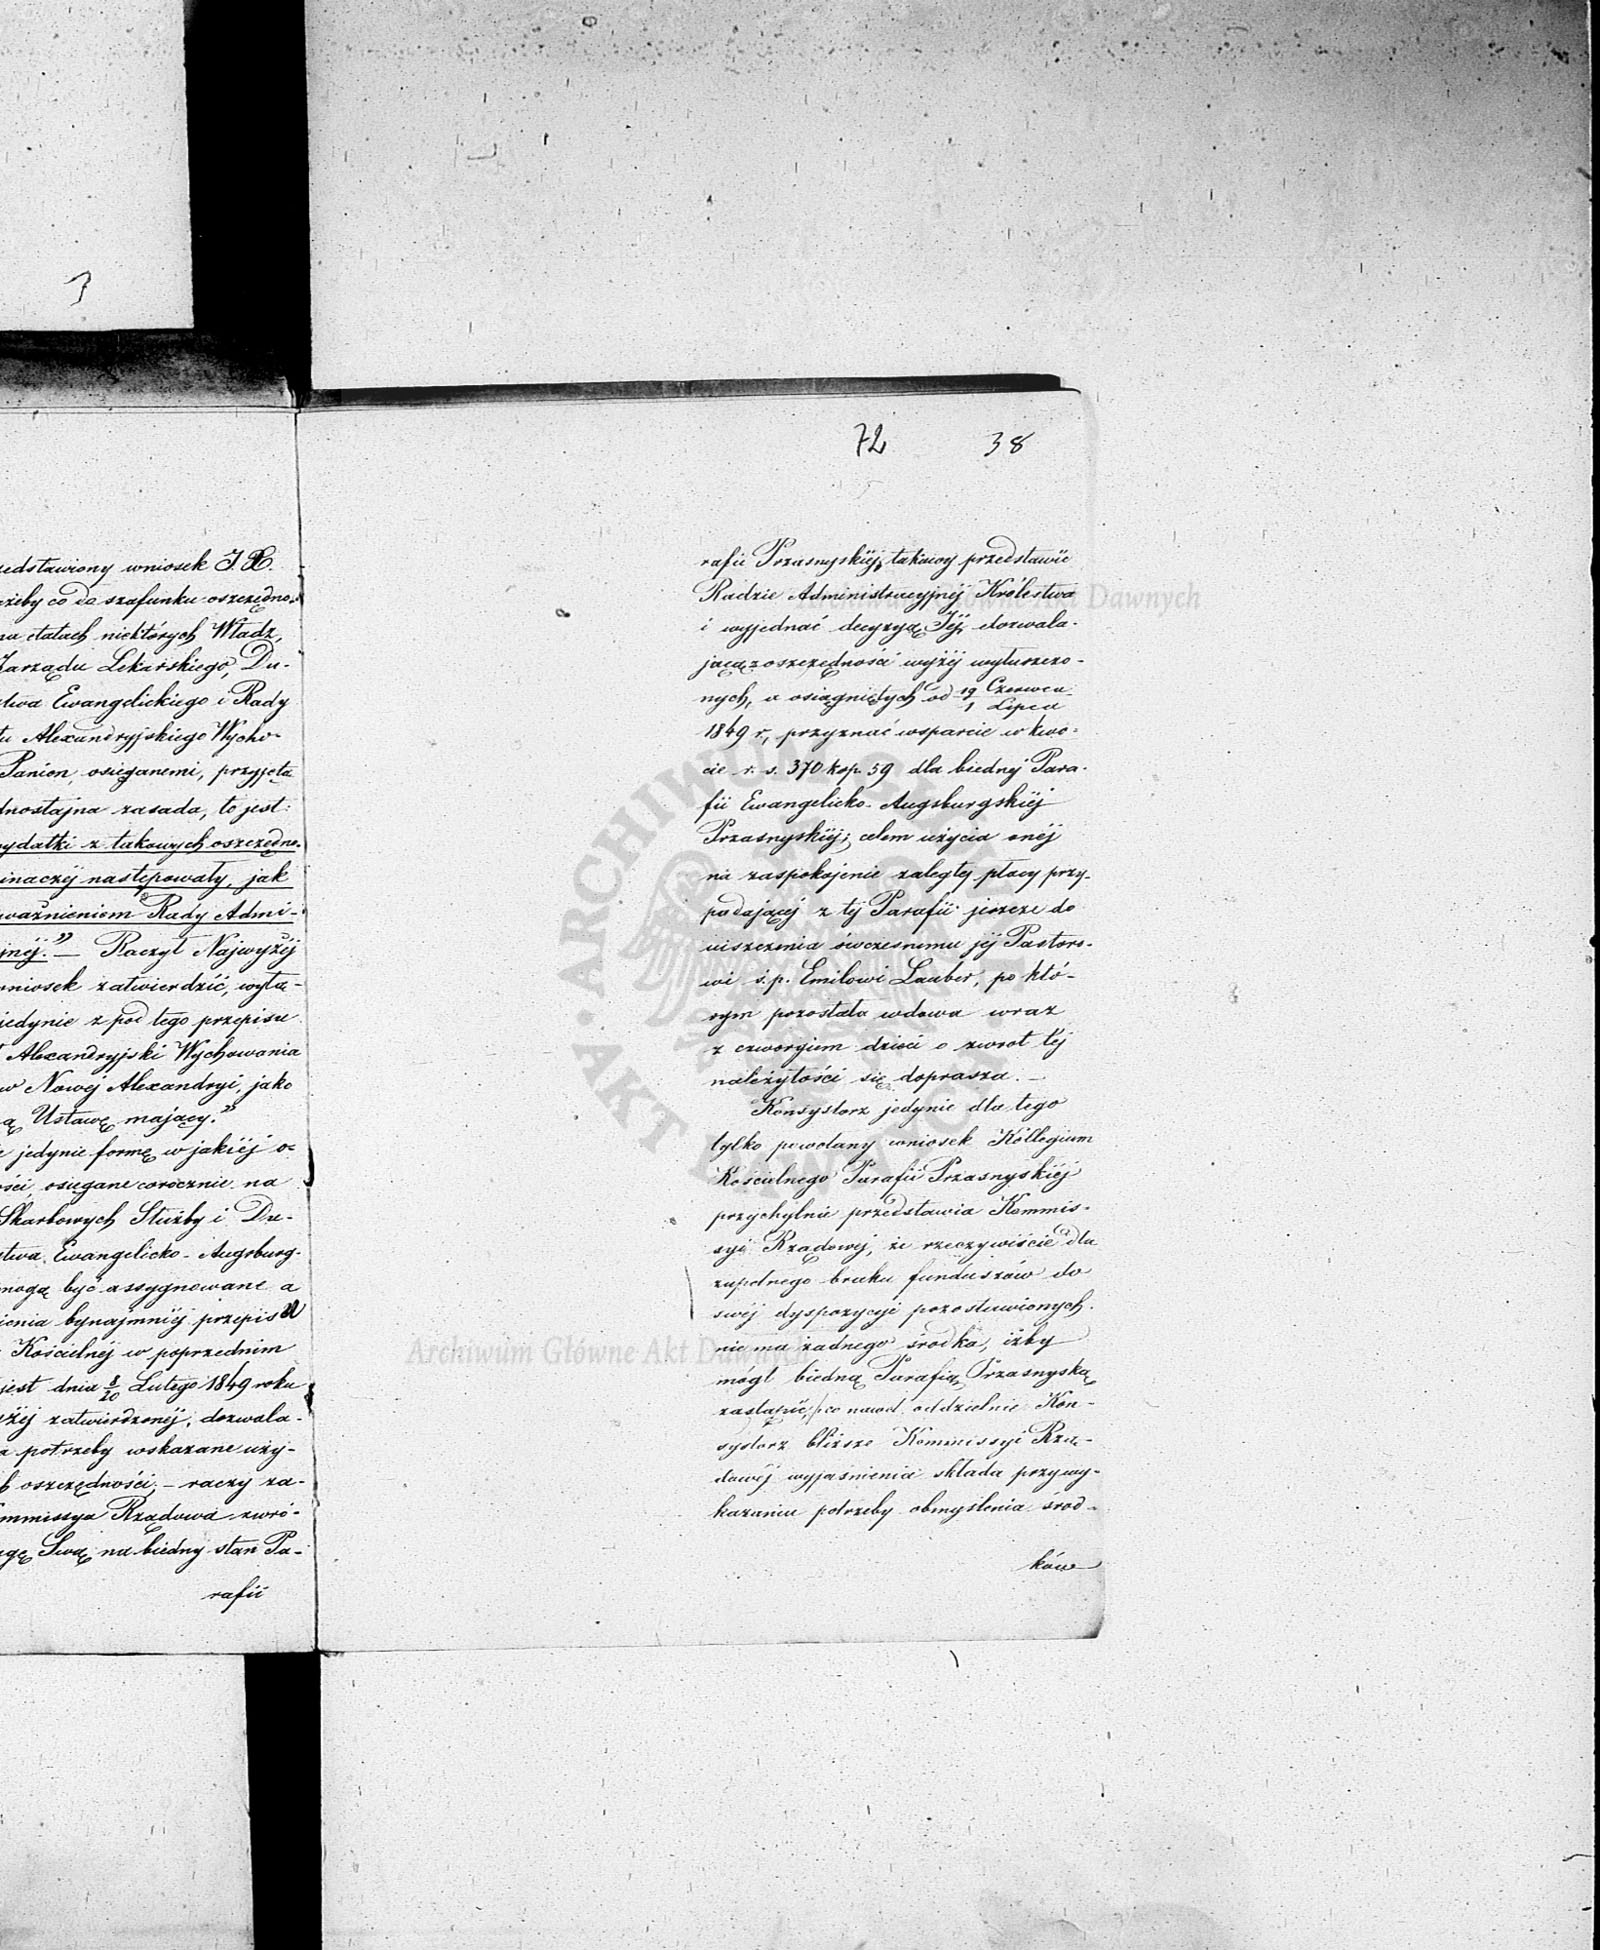 3
zedstawiony wniosek J. O.
ażeby co do szafunku oszczędno-
na etatach niektórych Władz,
Zarządu Lekarskiego, Du-
stwa Ewangelickiego i Rady
tu Alexandryjskiego Wycho-
Panien osięganemi, przyjęta
dnostajna zasada, to jest:
wydatki z takowych oszczędno-
inaczéj następowały, jak
ważnieniem Rady Admi-
jnéj." — Raczył Najwyżéj
wniosek zatwierdzić, wyłą-
jedynie z pod tego przepisu
Alexandryjski Wychowania
w Nowéj Alexandryi, jako
ą Ustawę mający."
jedynie formę w jakiéj o-
ości, osięgane corocznie na
Skarbowych Służby i Du-
stwa Ewangelicko-Augsburg-
mogą być assygnowane a
ienia bynajmniéj przepisu
Kościelnéj w poprzednim
jest dnia 8/20 Lutego 1849 roku
yżéj zatwierdzonéj, dozwala-
a potrzeby wskazane uży-
h oszczędności, — raczy za-
mmissya Rządowa zwró-
agę Swą na biedny stan Pa-
rafii
72 38
rafii Przasnyskiéj, takowy przedstawić
Radzie Administracyjnéj Królestwa
i wyjednać decyzyą Jéj, dozwala-
jącą z oszczędności wyżéj wyłuszczo-
nych, a osiągniętych od 19 Czerwca / 1 Lipca
1849 r., przyznać wsparcie w kwo-
cie r. s. 370 kop. 59 dla biednéj Para-
fii Ewangelicko-Augsburgskiéj
Przasnyskiéj; celem użycia onéj
na zaspokojenie zaległéj płacy przy-
padającéj z téj Parafii jeszcze do
uiszczenia ówczesnemu jéj Pastoro-
wi ś. p. Emilowi Lauber, po któ-
rym pozostała wdowa wraz
z czworgiem dzieci o zwrot téj
należytości się doprasza. —
Konsystorz jedynie dla tego
tylko powołany wniosek Kollegium
Kościelnego Parafii Przasnyskiéj
przychylnie przedstawia Kommis-
syi Rządowéj, że rzeczywiście dla
zupełnego braku funduszów do
swéj dyspozycyi pozostawionych
nie ma żadnego środka, iżby
mógł biedną Parafią Przasnyską
zastąpić, co nawet oddzielnie Kon-
systorz bliższe Kommissyi Rzą-
dowéj wyjaśnienia składa przy wy-
kazaniu potrzeby obmyślenia środ-
ków
Archiwum Główne Akt Dawnych
Archiwum Główne Akt Dawnych